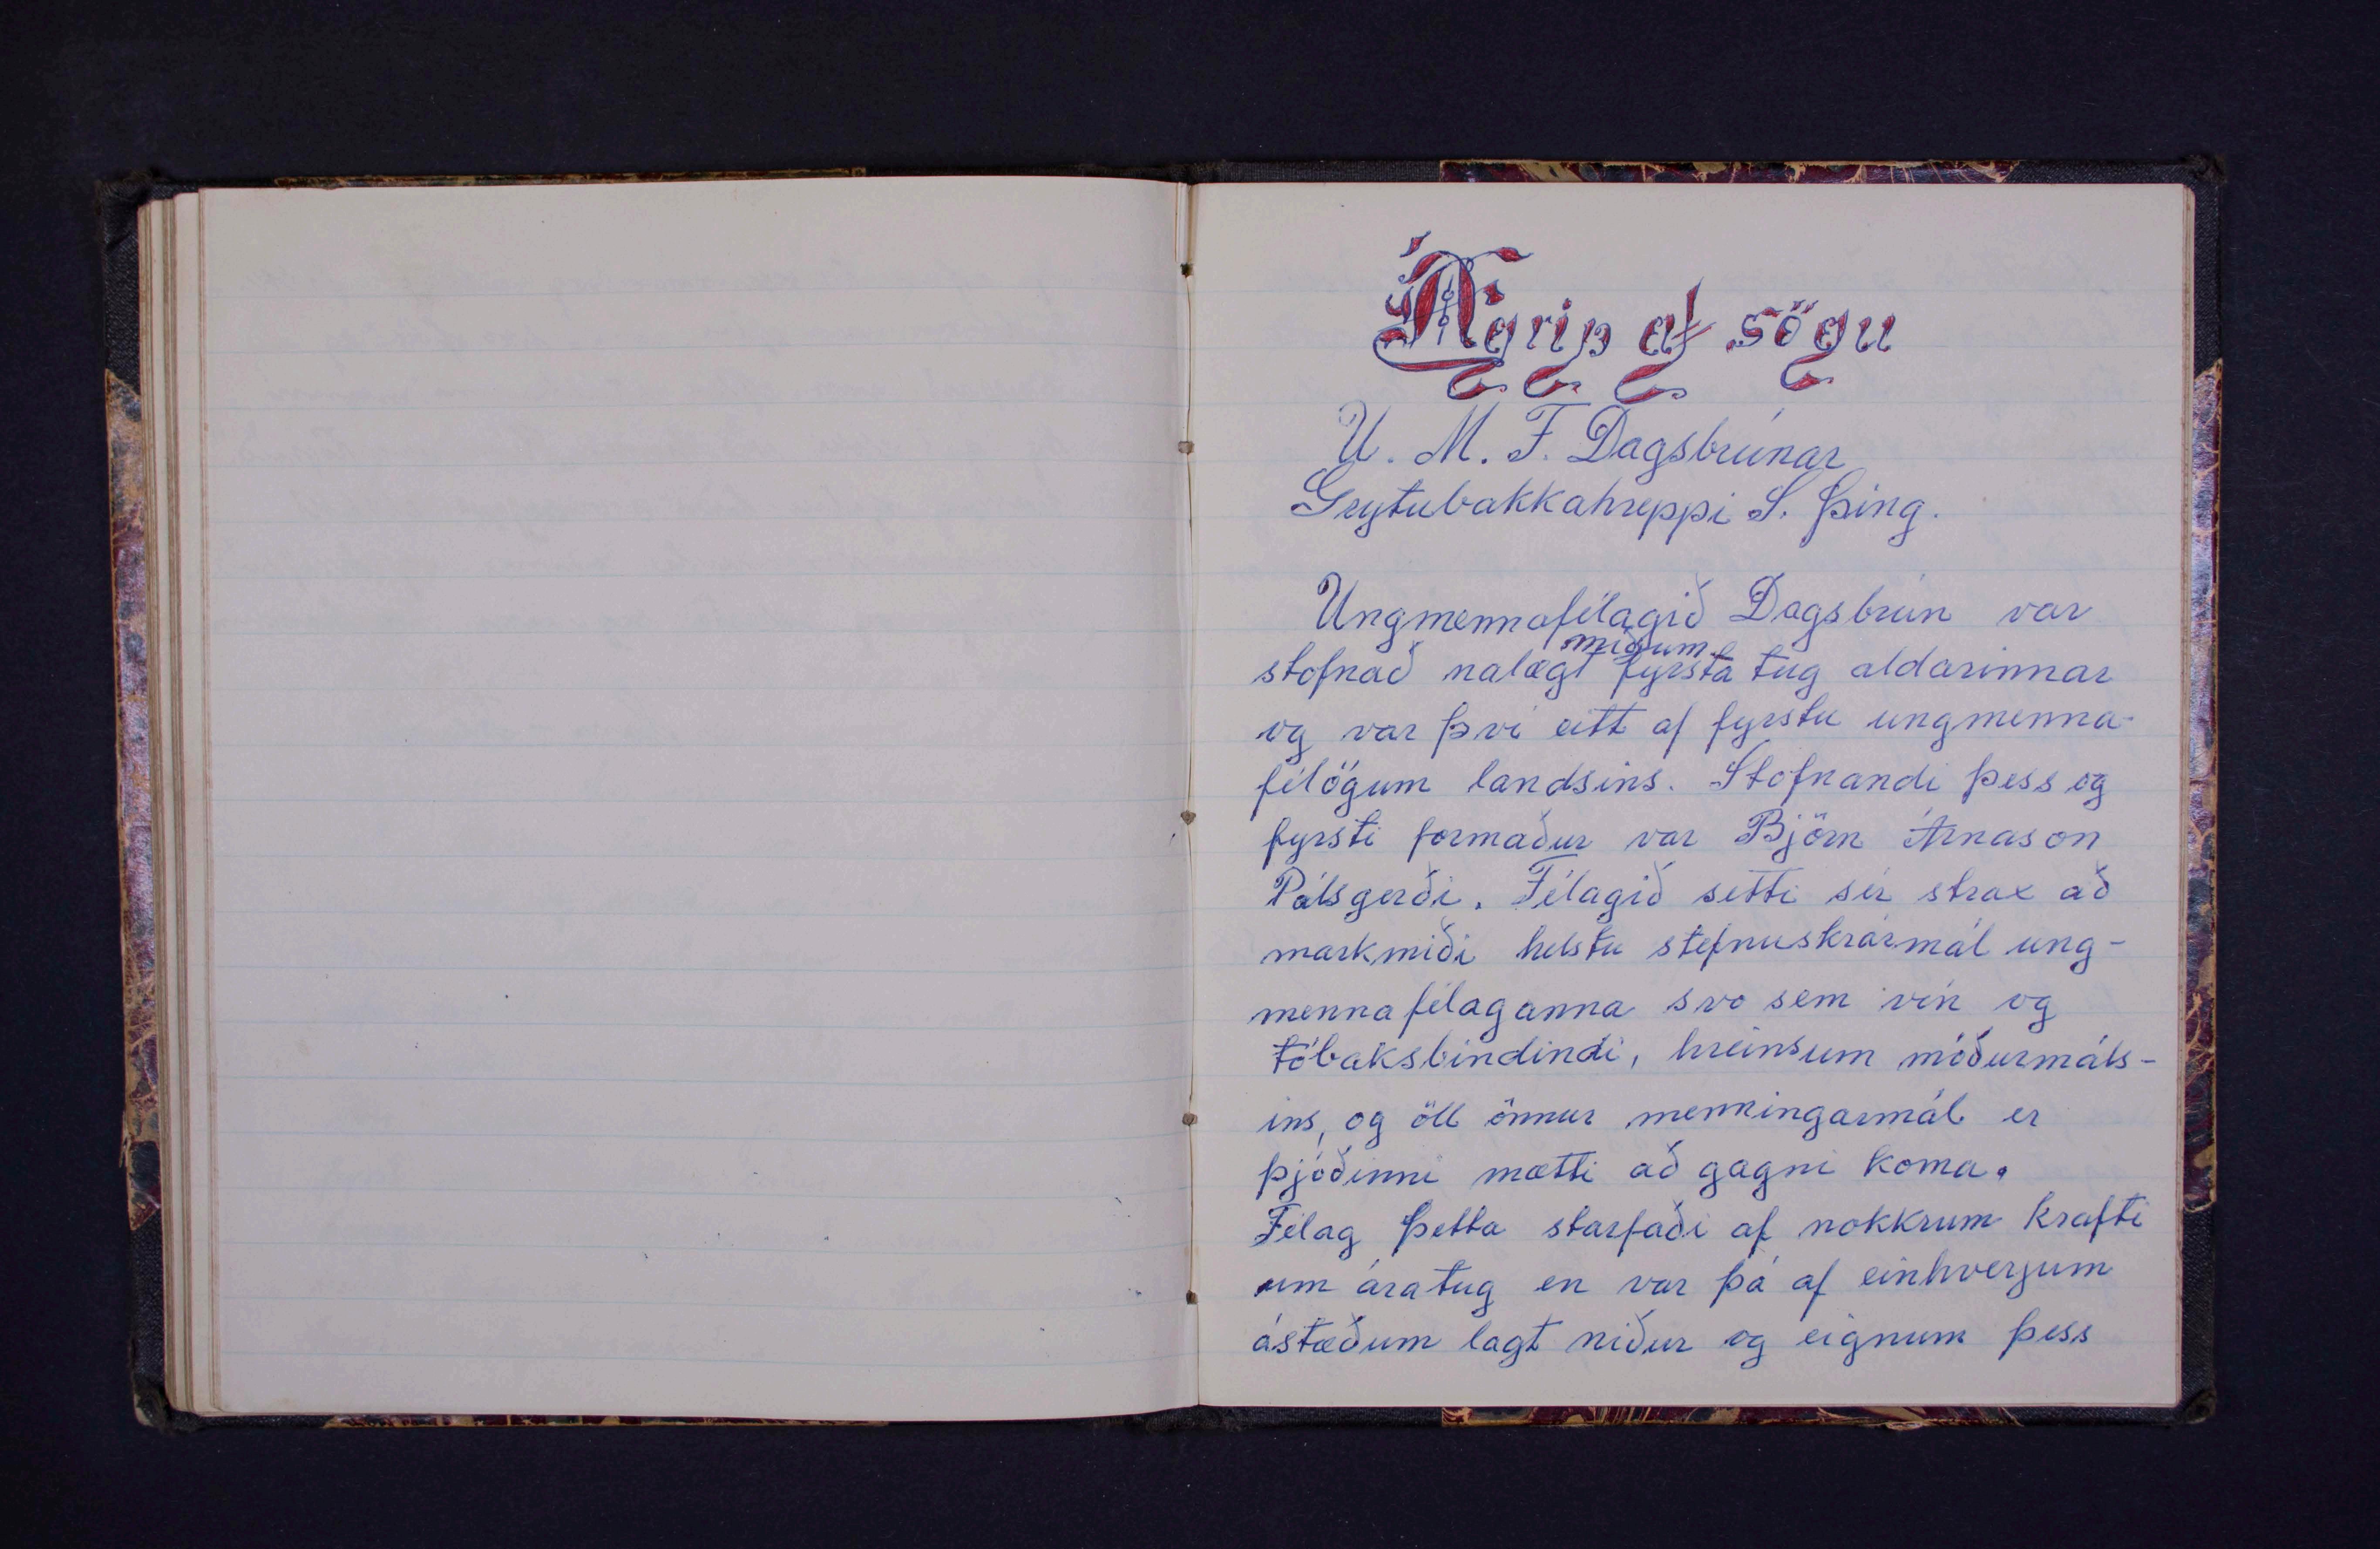 Ágrip af sögu
U. M. F. Dagsbrúnar
Grytubakkahreppi S. Þing.
Ungmennafélagið Dagsbrún var
miðjum
stofnað nalægt fyrsta tug aldarinnar
og var því eitt af fyrstu ungmenna-
félögum landsins. Stofnandi þess og
fyrsti formaður var Björn Árnason
Pálsgerði. Félagið setti sér strax að
markmiði helstu stefnuskrármál ung-
mennafélaganna svo sem vín og
tóbaksbindindi, hreinsum móðurmáls-
ins, og öll önnur menningarmál er
þjóðinni mætti að gagni koma.
Félag þetta starfaði af nokkrum krafti
um áratug en var þá af einhverjum
ástæðum lagt niður og eignum þess